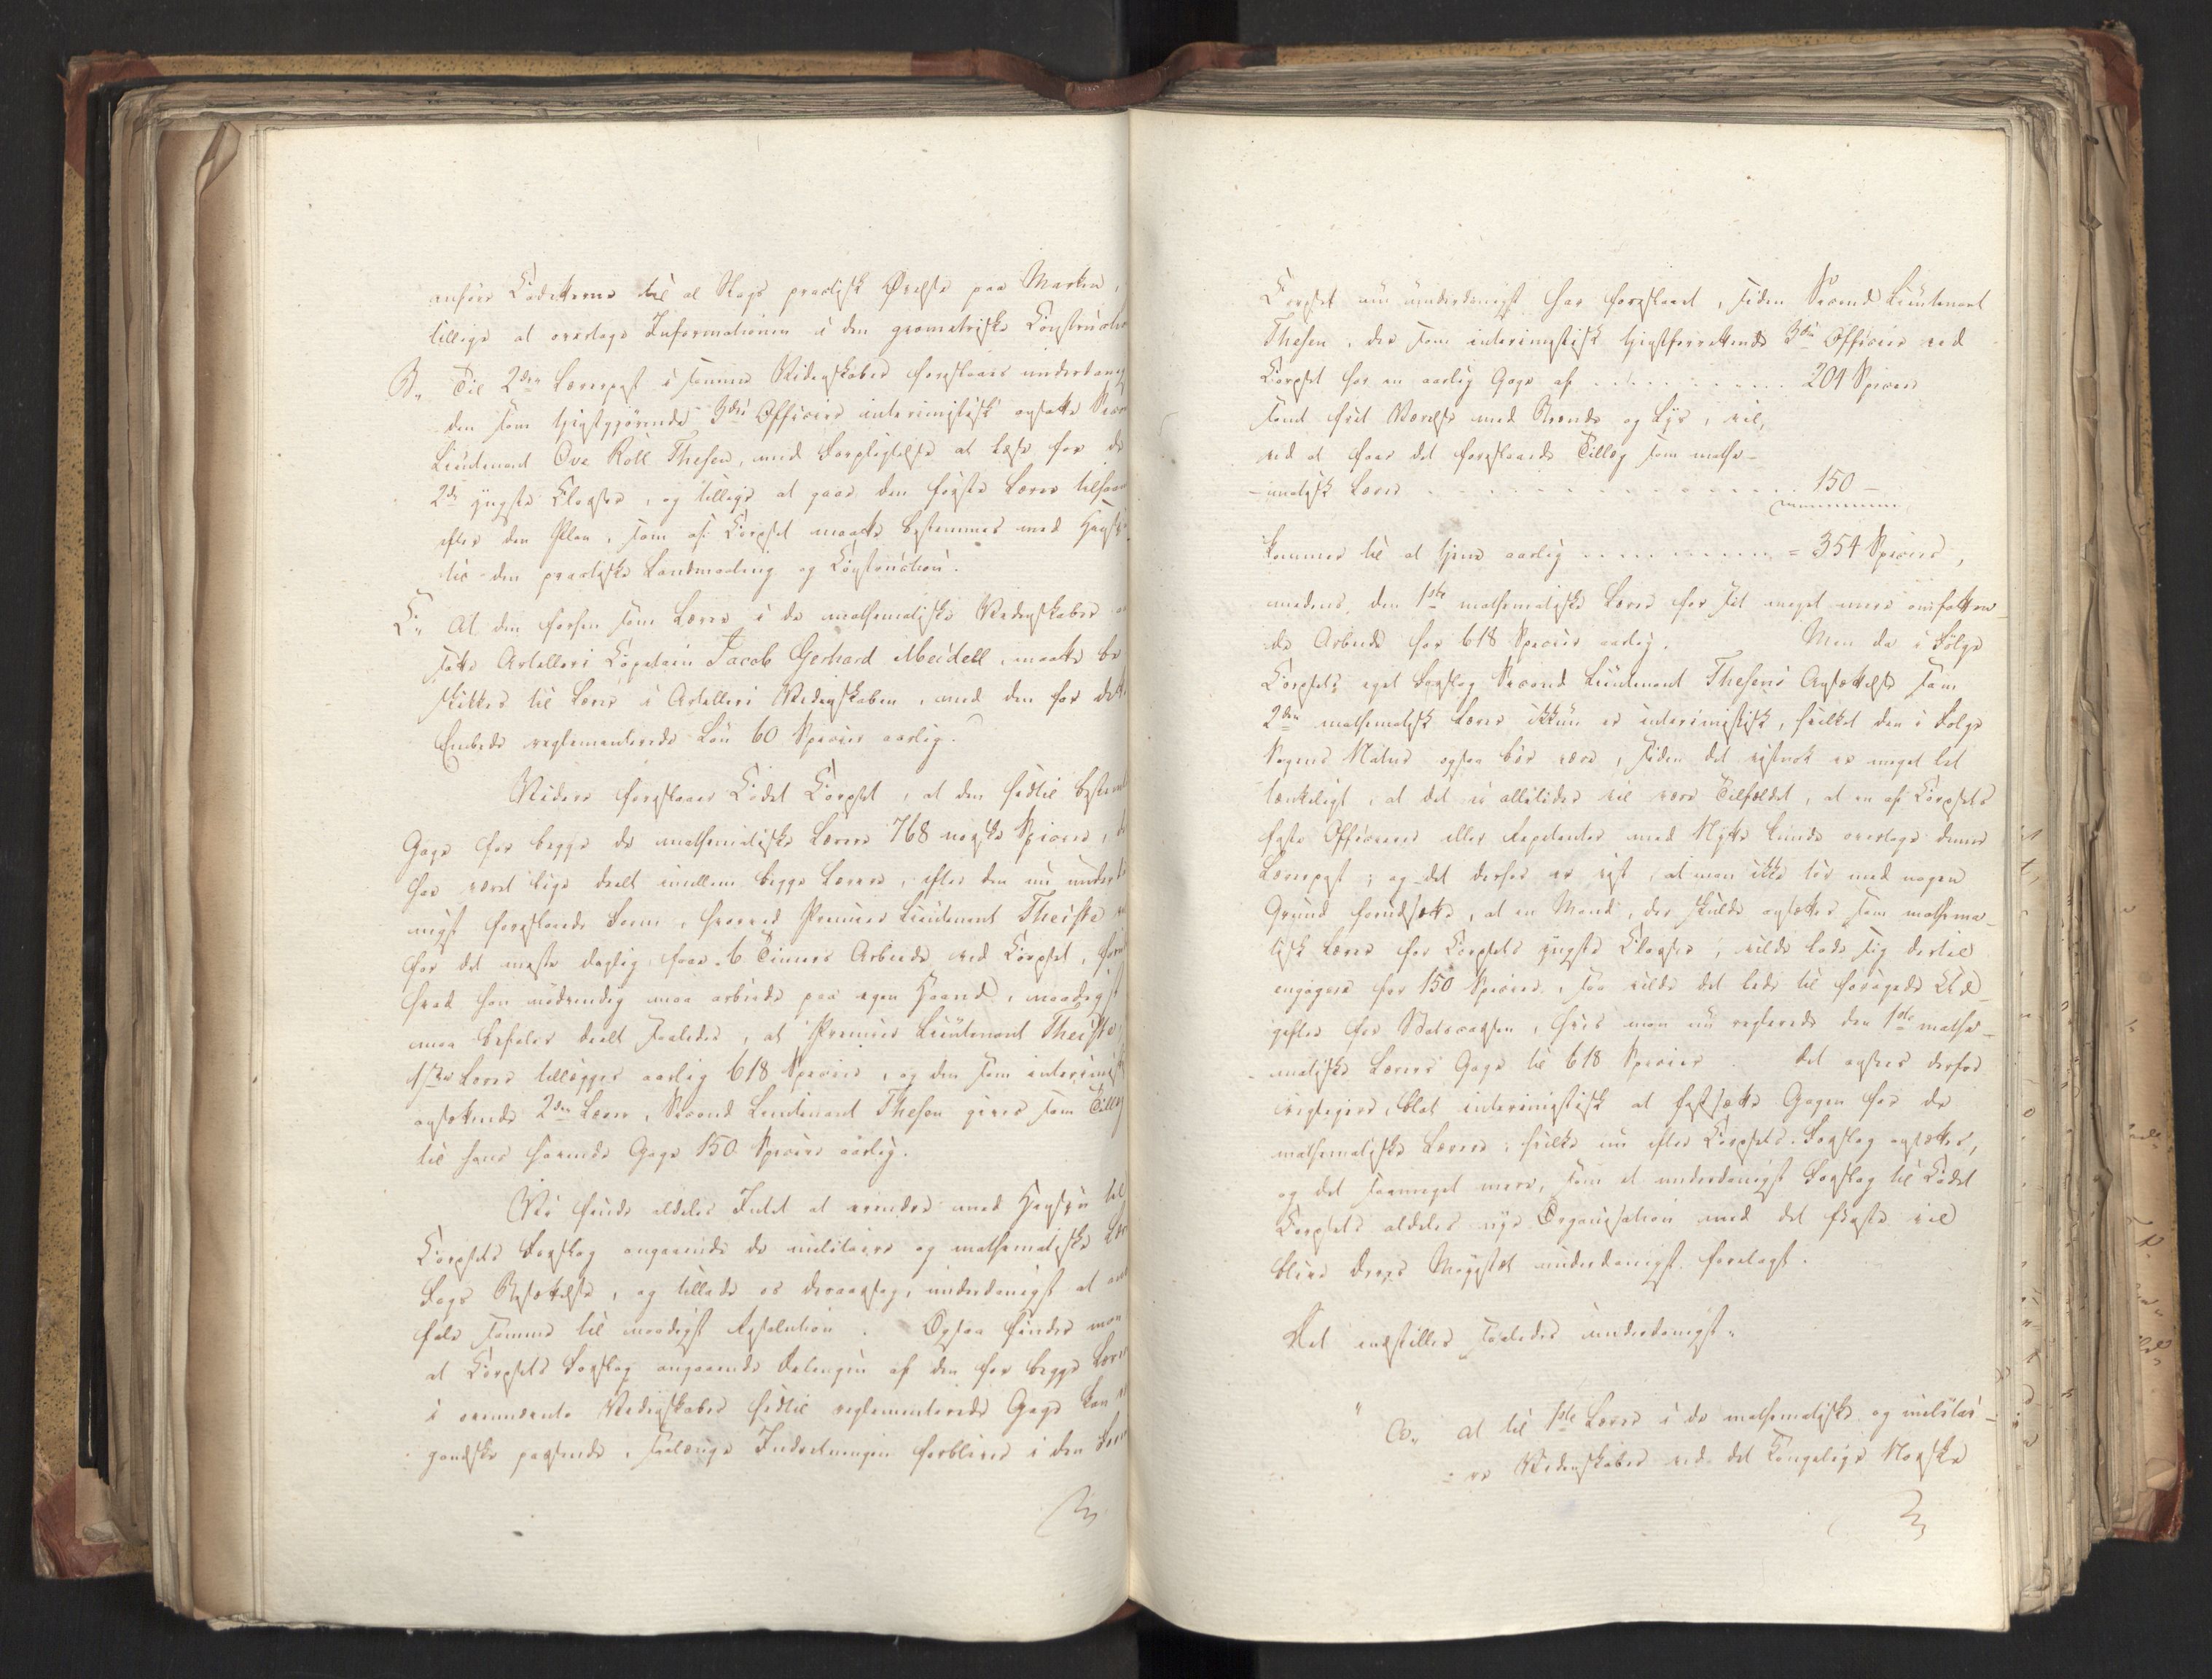 anføre Cadetterne til al Slags practisk Øvelse paa Marken,
tillige at overtage Informationen i den geometriske Constructio
B„ Til 2den Lærerpost i samme Videnskaber foreslaaes underdanig
den som tjenstgjørende 3die Officier interimistisk ansatte Secon
Lieutenant Ove Röll Thesen, med Forpligtelse at læse for de
2de yngste Classer, og tillige at gaae den første Lærer tilhaan
efter den Plan, som af Corpset maatte bestemmes med Hensÿ
til den practiske Landmaaling og Construction.
C„ At den forhen som Lærer i de mathematiske Videnskaber an
satte Artilleri Capitain Jacob Gerhard Meidell, maatte be
skikkes til Lærer i Artilleri Videnskaben, med den for dette
Embede reglementerede Løn 60 Species aarlig.
Videre foreslaaer Cadet Corpset, at den hidtil bestemt
Gage for begge de mathematiske Lærere 768 norske Species, de
har været lige deelt imellem begge Lærere, efter den nu underd
nigst foreslaaede Form, hvorved Premier Lieutenant Theiste
for det meste daglig faaer 6 Timers Arbeide ved Corpset, foru
hvad han nødvendig maa arbeide paa egen Haand, naadigst
maa befales deelt saaledes, at Premier Lieutenant Theiste,
1ste Lærer tillægges aarlig 618 Species, og den som interimist
ansættende 2den Lærer, Second Lieutenant Thesen gives som Tillæg
til hans havende Gage 150 Species aarlig.
Vi finde aldeles Intet at erindre med Hensÿn til
Corpsets Forslag angaaende de militaire og mathematiske Læ
Fags Besættelse, og tillade os desaarsag, underdanigst at anb
fale samme til naadigst Resolution. Ogsaa findes man
at Corpsets Forslag angaaende Delingen af den for begge Lærer
i ovennævnte Videnskaber hidtil reglementerede Gage kan
gandske passende, saalænge Indretningen forbliver i den Form
Corpset nu underdanigst har foreslaaet, siden Second Lieutenant
Thesen, der som interimistisk tjenstforrettende 3die Officier ved
Corpset har en aarlig Gage af . . . . . . . . . . . 204 Species
samt frit Værelse med Brænde og Lys, vil,
ved at faae det foreslaaede Tillæg som mathe-
-matisk Lærer . . . . . . . . . . . . . . . . 150 –
kommer til at tjene aarlig . . . . . . . . . . = 354 Species,
medens den 1ste mathematiske Lærer for sit meget mere omfatten-
de Arbeide har 618 Species aarlig. Men da i Følge
Corpsets eget Forslag Second Lieutenant Thesens Ansættelse som
2den mathematisk Lærer ikkun er interimistisk, hvilket den i Følge
Sagens Natur ogsaa bør være, siden det vistnok er meget let
tænkeligt, at det ei altitider vil være Tilfældet, at en af Corpsets
faste Officierer eller Repetenter med Nytte kunde overtage denne
Lærerpost; og det derfor er vist, at man ikke tør med nogen
Grund forudsætte, at en Mand, der skulde ansættes som mathema-
tisk Lærer for Corpsets yngste Classer, vilde lade sig dertil
engagere for 150 Species, saa vilde det lede til forøgede Ud-
gifter for Statscassen, hvis man nu regulerede den 1ste mathe-
-matiske Lærers Gage til 618 Species. Det ansees derfor
rigtigere, blot interimistisk at fastsætte Gagen for de
mathematiske Lærere, hvilke nu efter Corpsets Forslag ansættes,
og det saameget mere, som et underdanigst Forslag til Cadet
Corpsets aldeles nye Organisation med det første vil
blive Deres Majestæt underdanigst forelagt.
Det indstilles saaledes underdanigst:
" A„ at til 1ste Lærer i de mathematiske og militai-
= re Videnskaber ved det Kongelige Norske